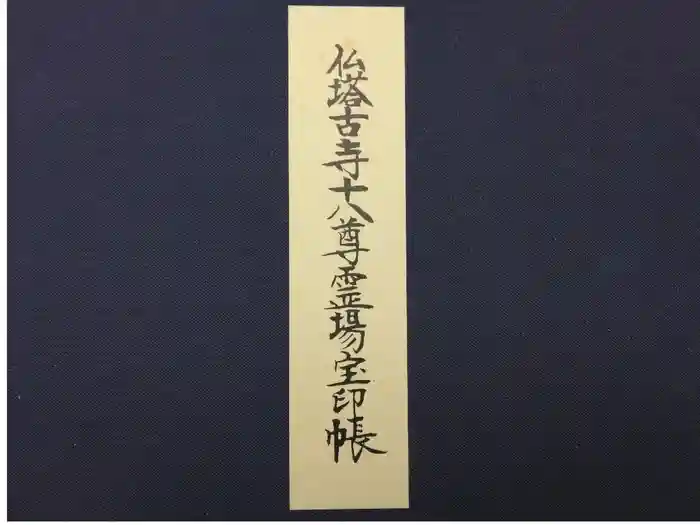 仏塔古寺十八尊霊場宝印帳